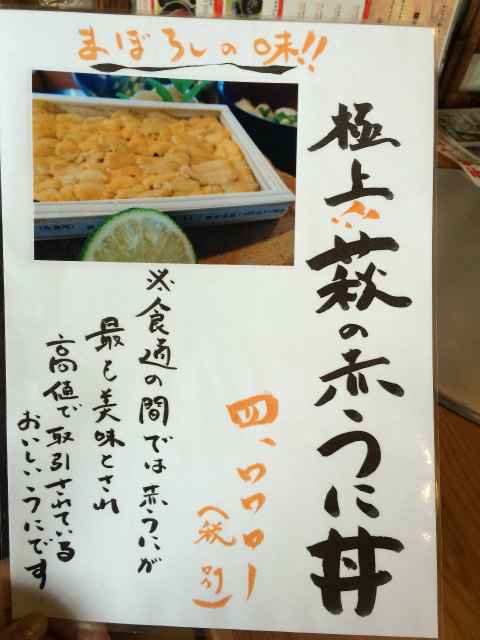 まぼろしの味!!
極上!!萩の赤うに丼
四、〇〇〇ー
(税別)
※食通の間では赤うにが
最も美味とされ
高値で取引されている
おいしいうにです